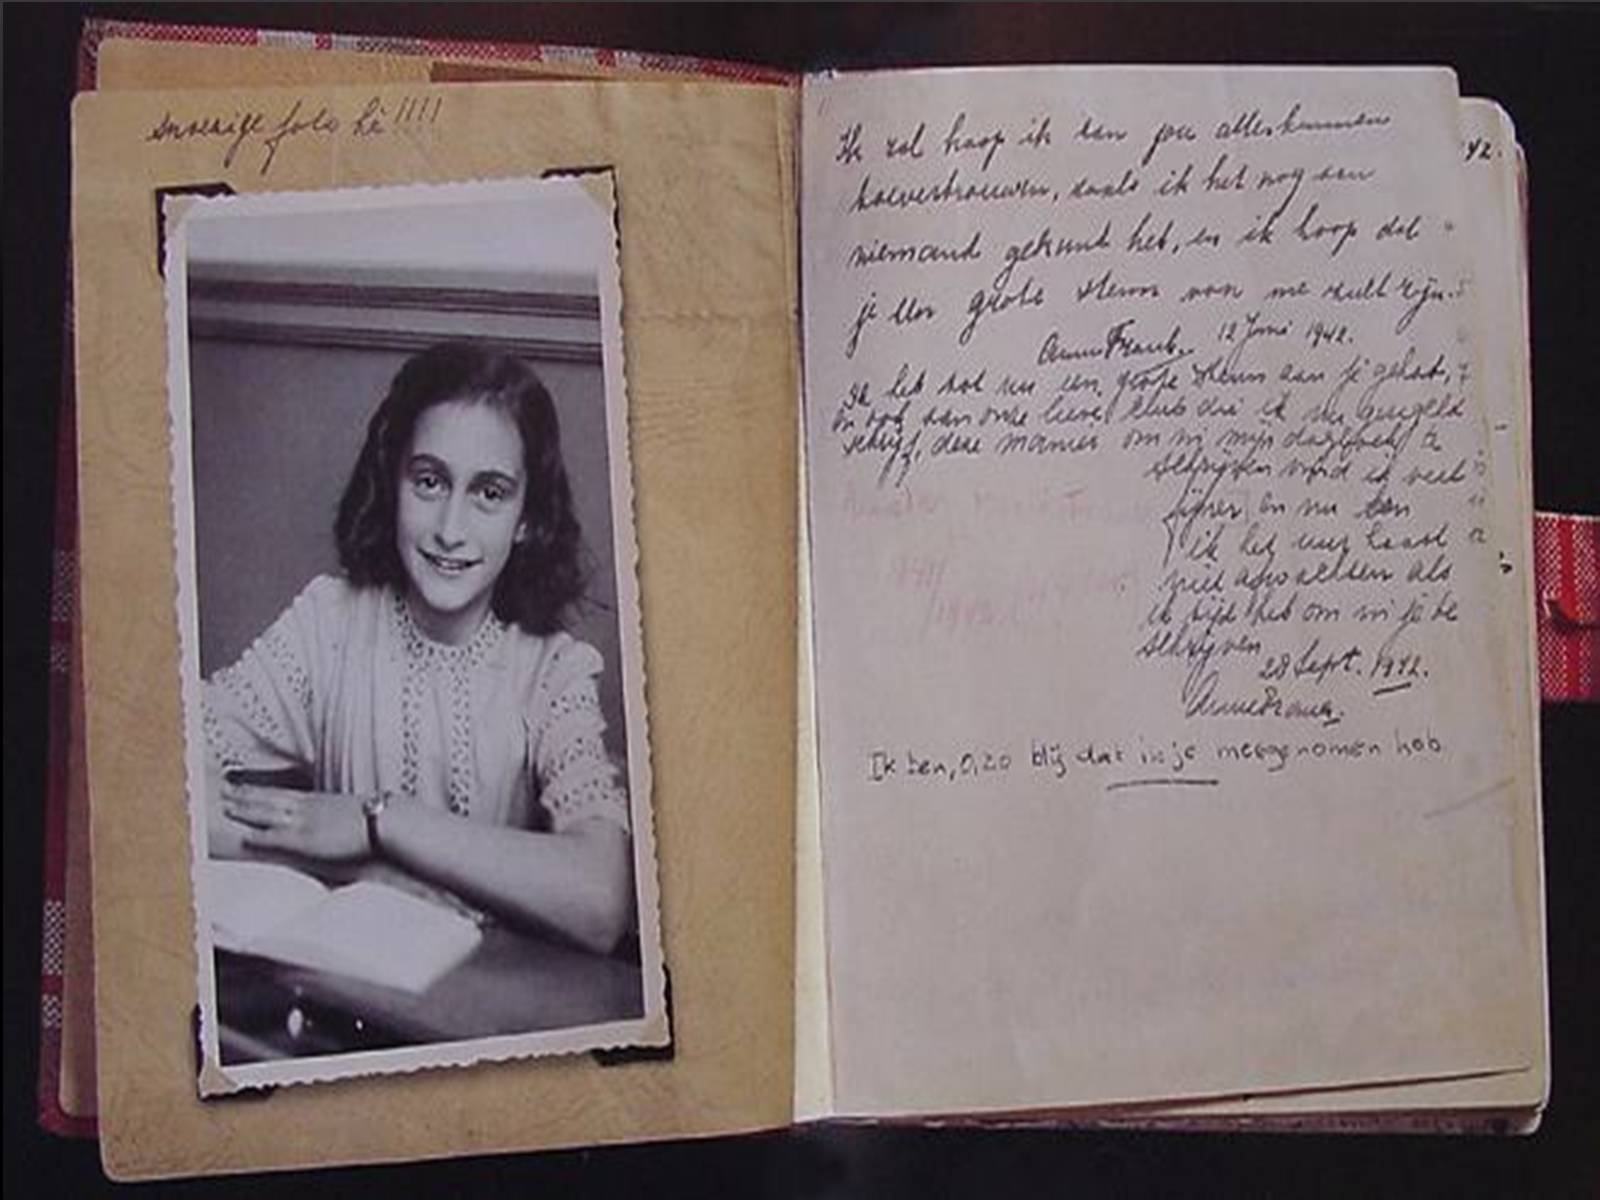 snoezige foto hè!!!!
Ik zal hoop ik aan jou alles kunnen
toevertrouwen, zoals ik het nog aan
niemand gekund heb, en ik hoop dat
je een grote steun van me zult zijn.
Anne Frank. 12 Juni 1942.
Ik heb tot nu een grote steun aan je gehad,
en ook aan onze lieve club die ik nu geregeld
schrijf, deze manier om in mijn dagboek te
schrijven vind ik veel
fijner en nu kan
ik het uur haast
niet afwachten als
ik tijd heb om in je te
schrijven
28 Sept. 1942.
Anne Frank.
Ik ben, o, zo blij dat ik je meegenomen heb
42.